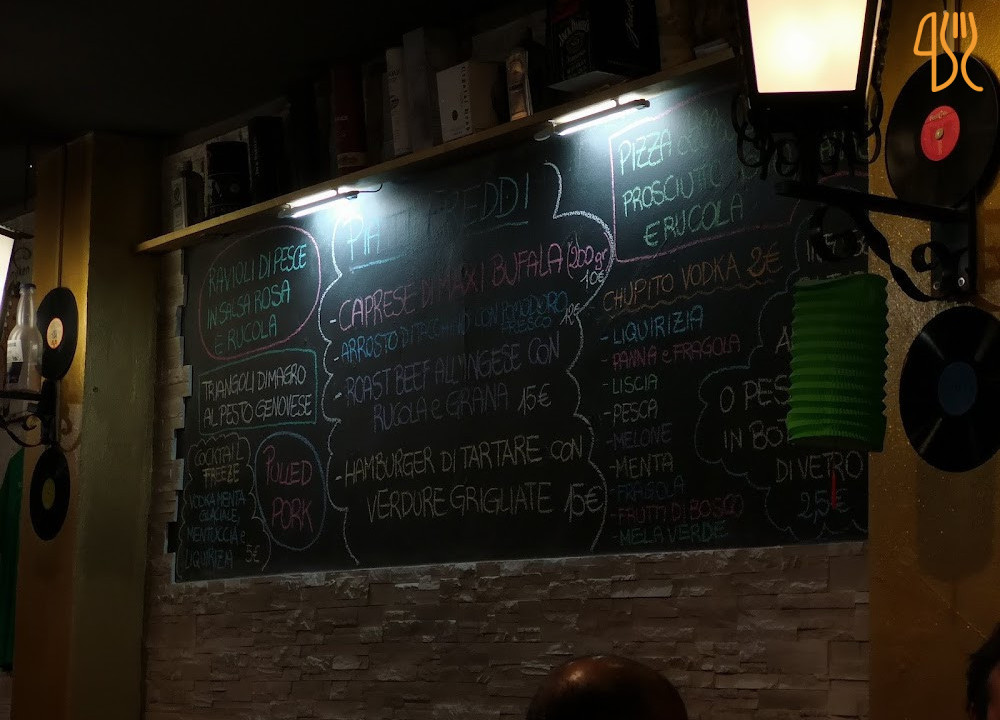 RAVIOLI DI PESCE
IN SALSA ROSA
E RUCOLA
TRIANGOLI DI MAGRO
AL PESTO GENOVESE
COCKTAIL
FREEZE
VODKA MENTA
GLACIALE
MENTUCCIA e
LIQUIRIZIA 5€
PULLED
PORK
FREDDI
- CAPRESE DI MAXI BUFALA (200gr
10€
- ARROSTO DI TACCHINO CON POMODORO
FRESCO 12€
- ROAST BEEF ALL'INGLESE CON
RUCOLA e GRANA 15€
- HAMBURGER DI TARTARE CON
VERDURE GRIGLIATE 15€
PIZZA
PROSCIUTTO
E RUCOLA
CHUPITO VODKA 2€
- LIQUIRIZIA
- PANNA e FRAGOLA
- LISCIA
- PESCA
- MELONE
- MENTA
- FRAGOLA
- FRUTTI DI BOSCO
- MELA VERDE
O PES
IN BOT
DI VETRO
2,5€